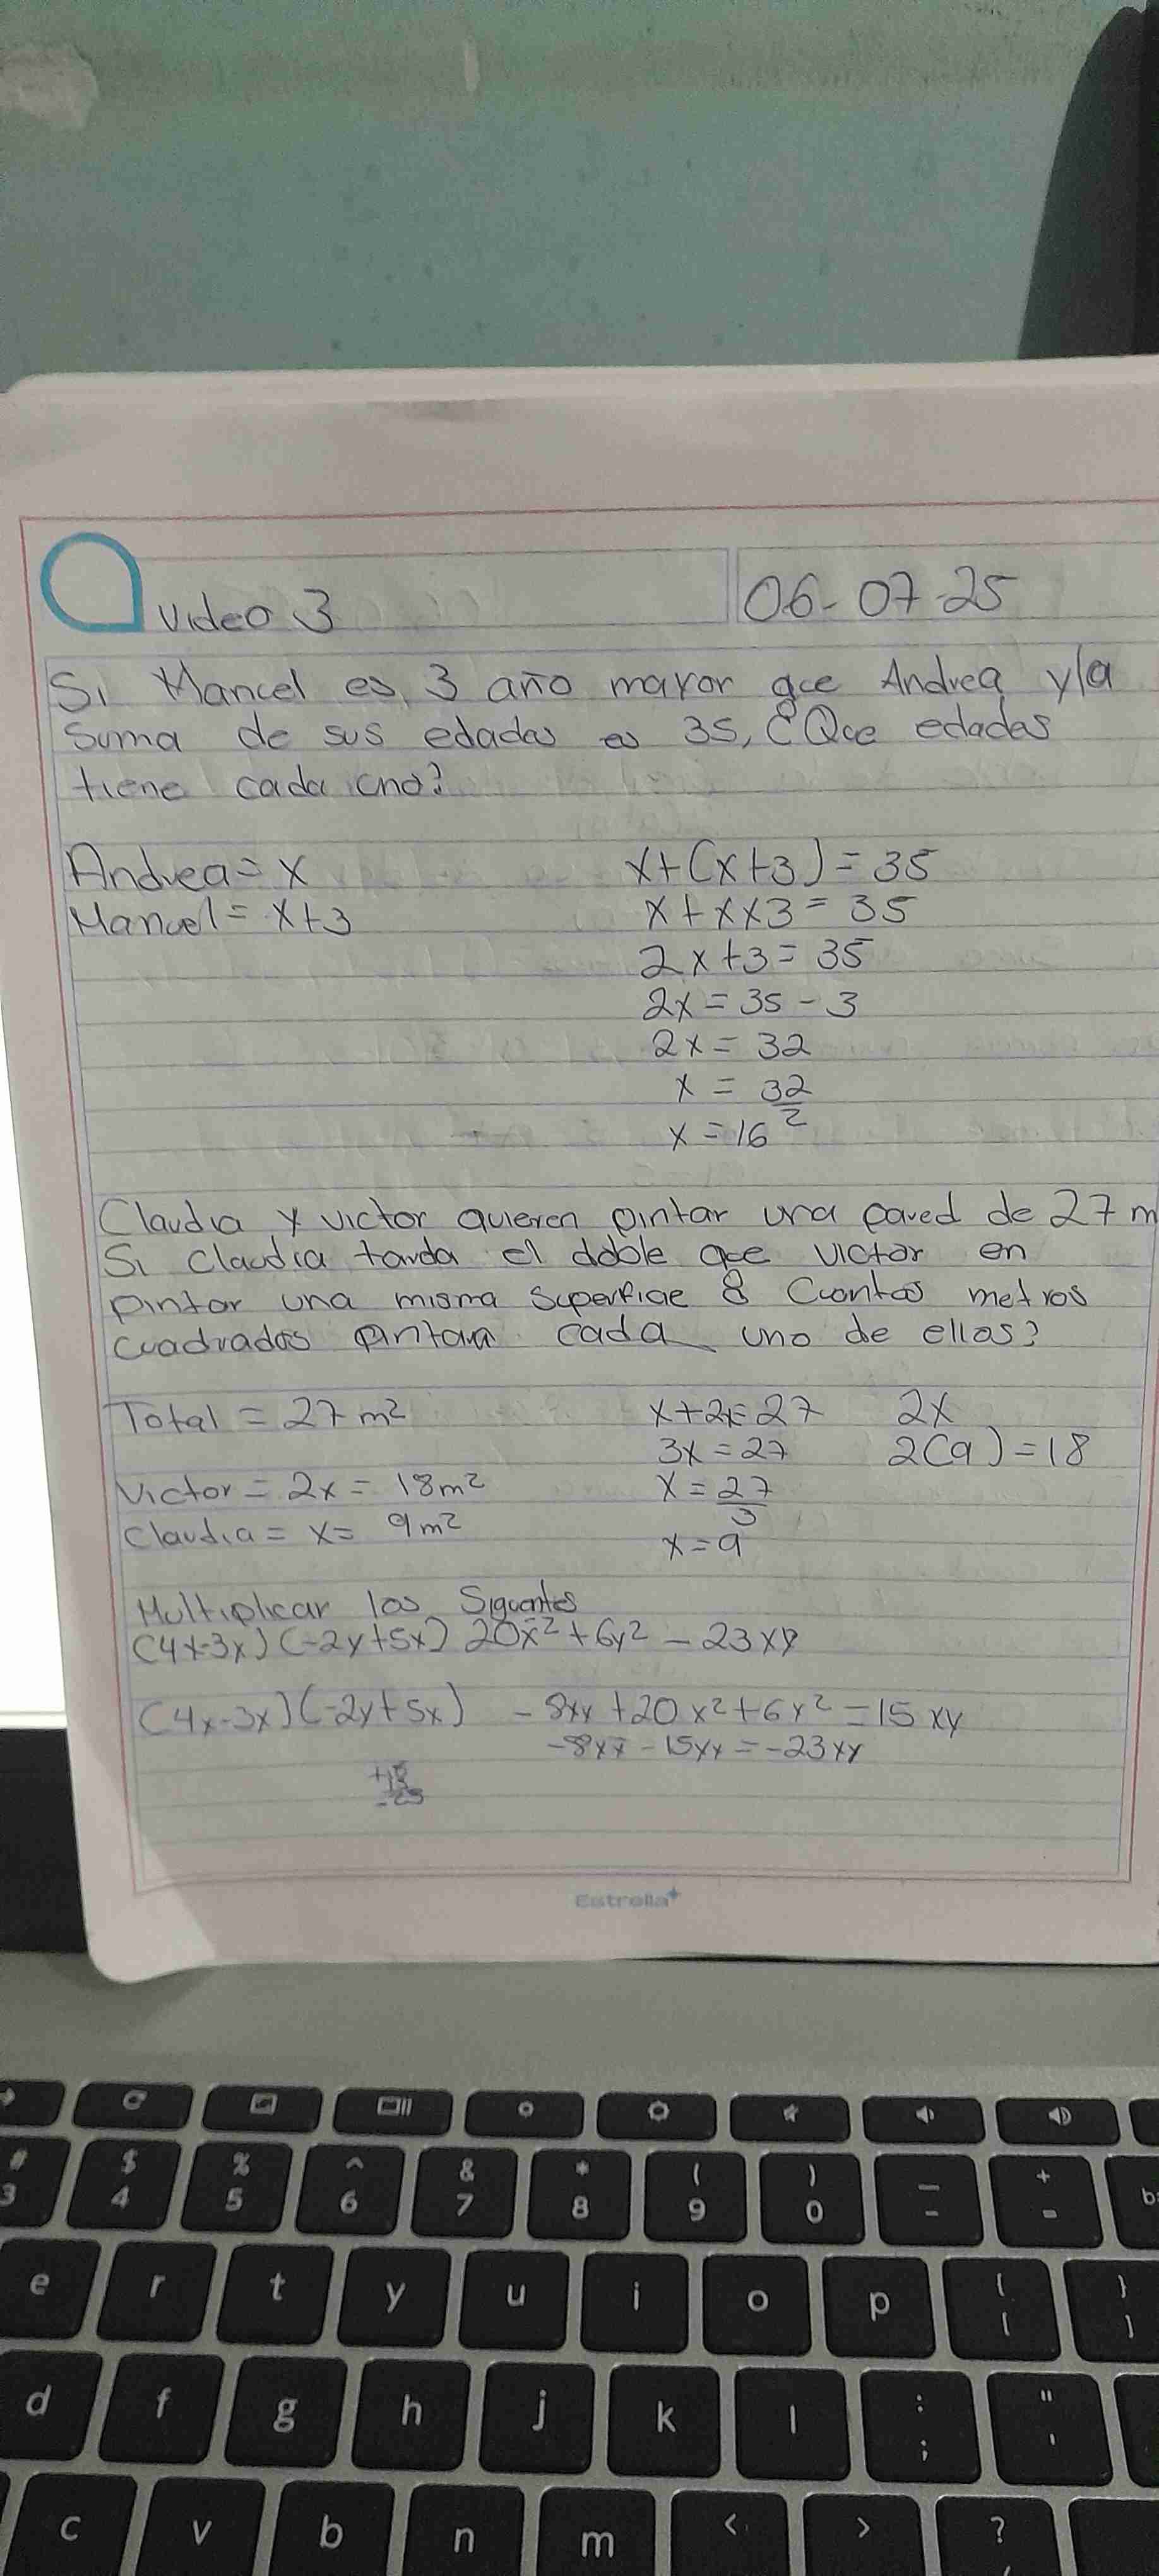 Video 3
06-07-25
Si Manuel es, 3 año mayor que Andrea y la
Suma de sus edades es 35, ¿Que edades
tiene cada uno?
Andrea = x
x+(x+3) = 35
Manuel = x+3
x + xx3 = 35
2x+3 = 35
2x = 35 - 3
2x = 32
x = 32
2
x = 16
Claudia y victor quieren pintar una pared de 27 m
Si Claudia tarda el doble que victor en
pintar una misma Superficie ¿ Cuantos metros
cuadrados pintan cada uno de ellos?
Total = 27 m²
x+2x=27
2x
3x = 27
2(9) = 18
Victor = 2x = 18m²
x = 27
3
Claudia = x = 9m²
x = 9
Multiplicar los Siguentes
(4x-3x) (-2y+5x) 20x² + 6y² - 23xy
(4x-3x) (-2y+5x) - 8xy + 20x² + 6y² = 15 xy
-8xx - 15xy = -23xy
Estrella+
# $ % ^ & * ( ) — +
3 4 5 6 7 8 9 0 - =
e r t y u i o p { }
[ ]
d f g h j k l : "
; '
c v b n m < > ?
/